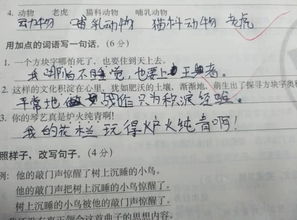 4. 动物 老虎 猫科动物 哺乳动物
动物 哺乳动物 猫科动物 老虎
用加点的词语写一句话。(6分)
1. 一个方块字哪怕死了,也要住到天上去。
我哪怕不睡觉,也要上王者。
2. 这样的文化积淀在心里,犹如肥沃的土壤,渐渐地,萌生出了探寻方块字奥
平常地 只为积淀经验。
3. 你的琴艺真是炉火纯青啊!
我的 玩得炉火纯青啊!
照样子,改写句子。(4分)
例: 他的敲门声惊醒了树上沉睡的小鸟。
他的敲门声把树上沉睡的小鸟惊醒了。
树上沉睡的小鸟被他的敲门声惊醒了。
这首曲子的思想内容。